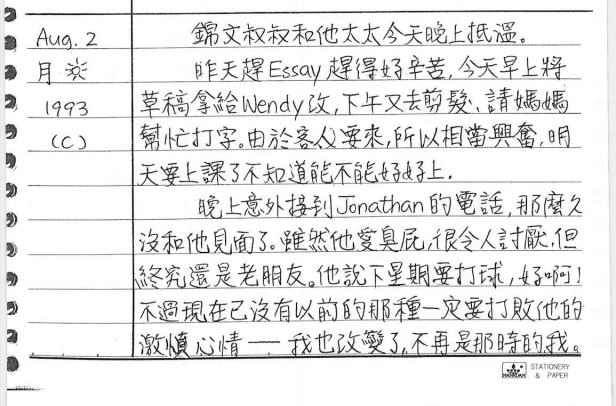 Aug. 2
錦文叔叔和他太太今天晚上抵溫。
月
昨天趕Essay趕得好辛苦,今天早上將
1993
草稿拿給Wendy改,下午又去剪髮、請媽媽
(C)
幫忙打字。由於客人要來,所以相當興奮,明
天要上課了不知道能不能好好上.
晚上意外接到Jonathan的電話,那麼久
沒和他見面了。雖然他愛臭屁,很令人討厭,但
終究還是老朋友。他說下星期要打球,好啊!
不過現在已沒有以前的那種一定要打敗他的
激憤心情——我也改變了,不再是那時的我。
STATIONERY
& PAPER